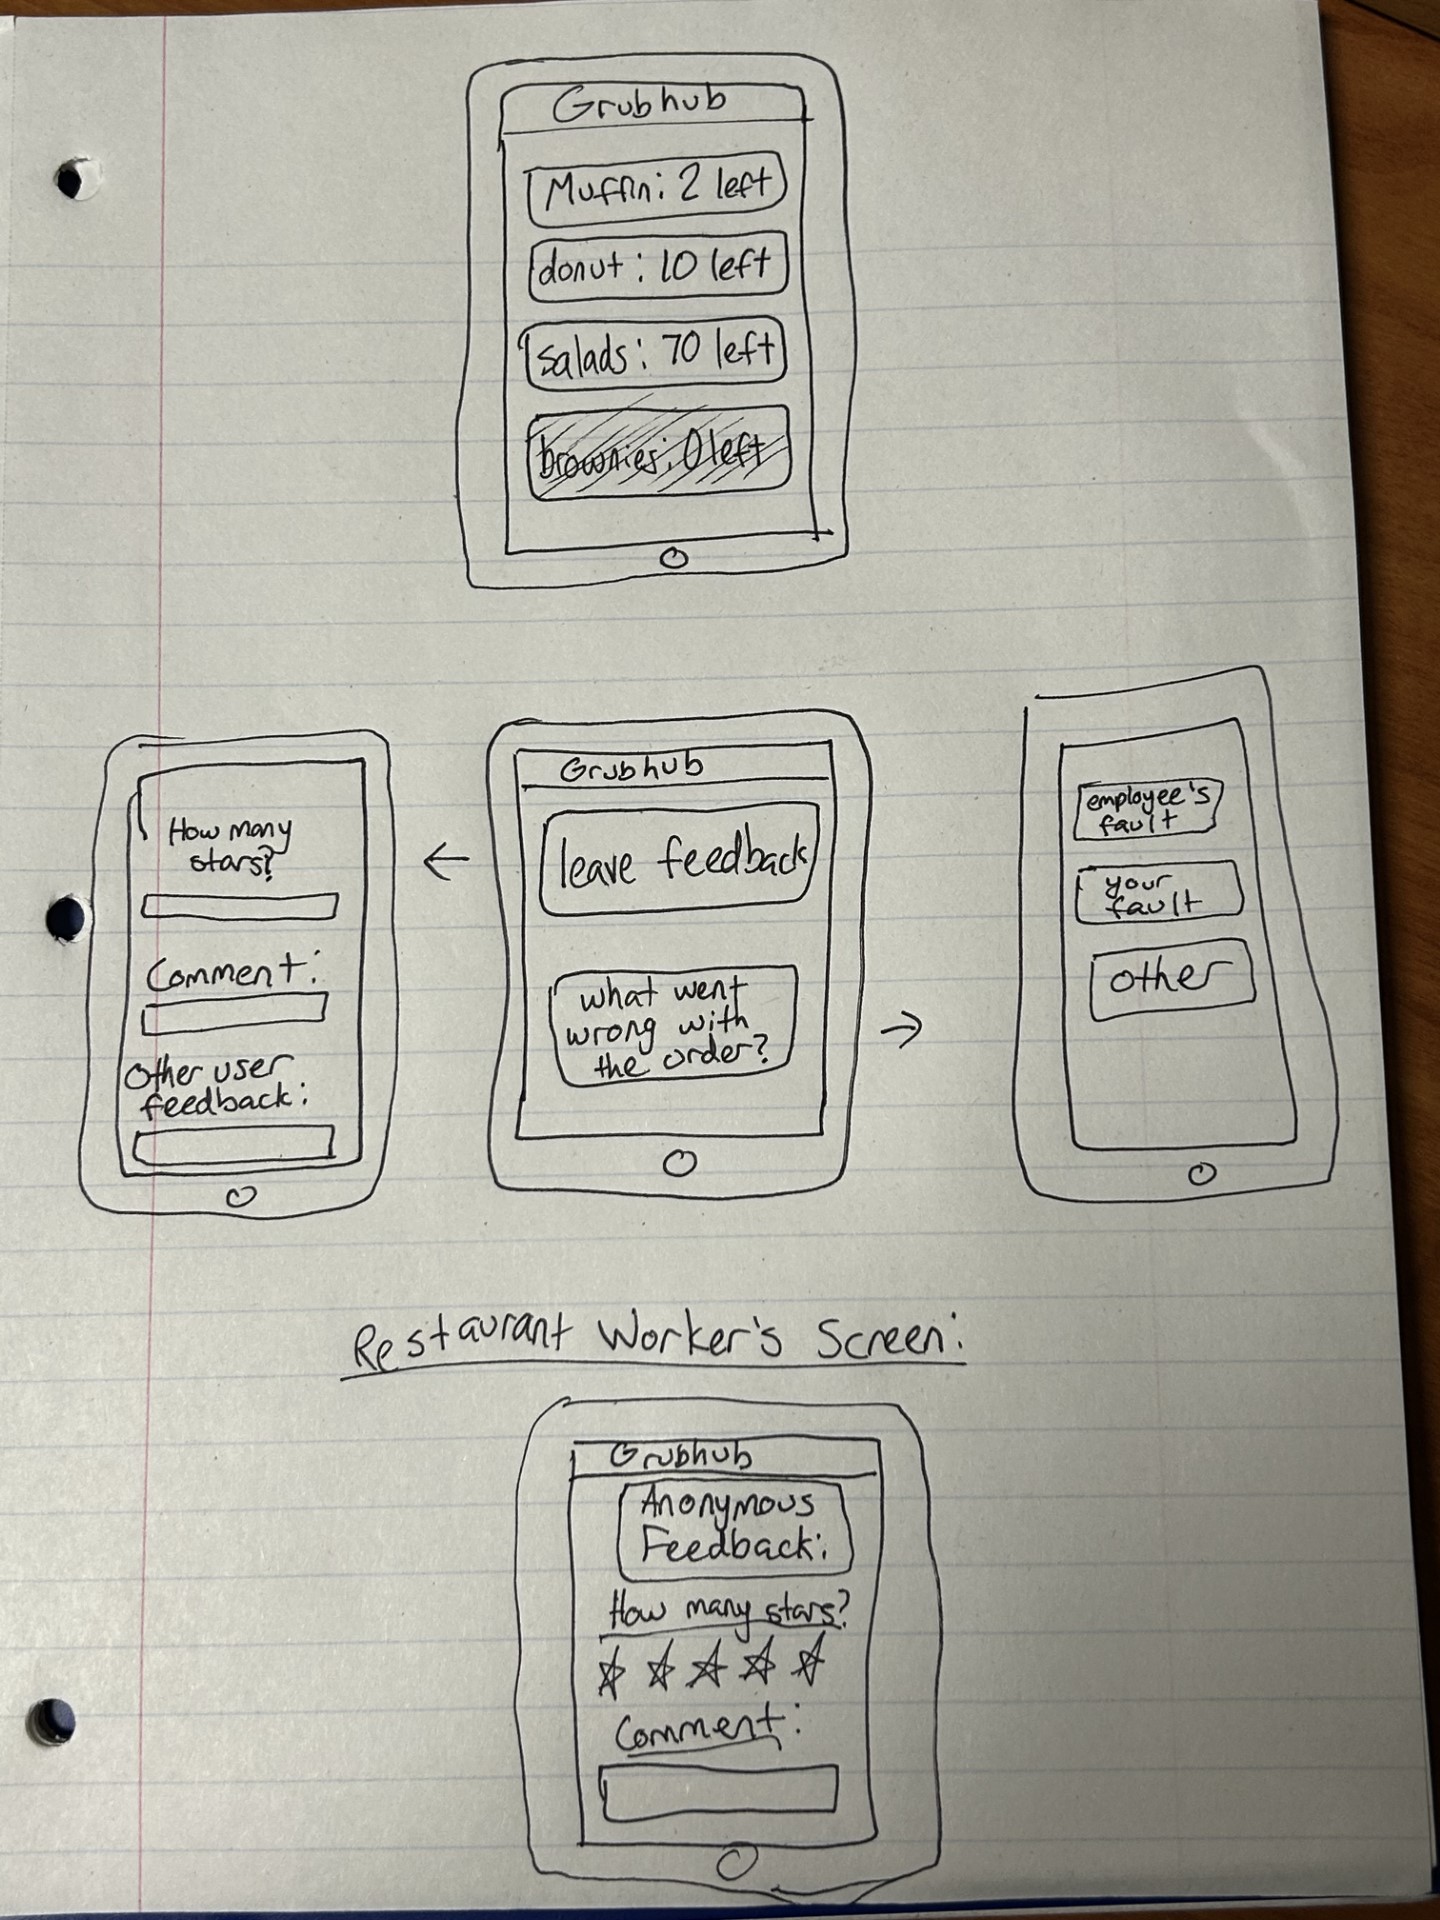 Grubhub
Muffin: 2 left
donut: 10 left
salads: 70 left
brownies: 0 left
How many
stars?
Comment:
Other user
feedback:
Grubhub
leave feedback
what went
wrong with
the order?
employee's
fault
your
fault
other
Restaurant Worker's Screen:
Grubhub
Anonymous
Feedback:
How many stars?
Comment: